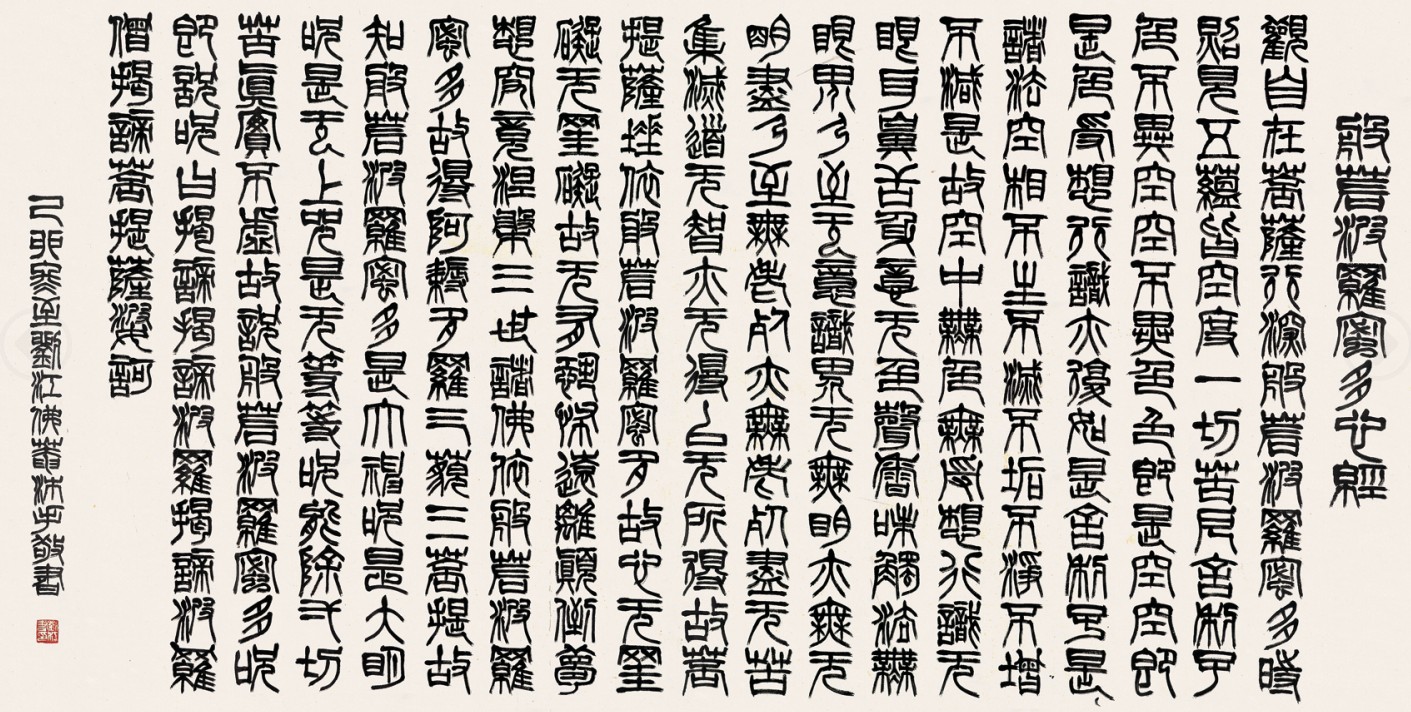 般若波羅蜜多心經
觀自在菩薩行深般若波羅蜜多時
照見五蘊皆空度一切苦厄舍利子
色不異空空不異色色即是空空即
是色受想行識亦復如是舍利子是
諸法空相不生不滅不垢不淨不增
不減是故空中無色無受想行識无
眼耳鼻舌身意无色聲香味觸法無
眼界乃至无意識界无無明亦無无
明盡乃至無老死亦無老死盡无苦
集滅道无智亦无得以无所得故菩
提薩埵依般若波羅蜜多故心无罣
礙无罣礙故无有恐怖遠離顛倒夢
想究竟涅槃三世諸佛依般若波羅
蜜多故得阿耨多羅三藐三菩提故
知般若波羅蜜多是大神呪是大明
呪是无上呪是无等等呪能除一切
苦眞實不虛故說般若波羅蜜多呪
即說呪曰揭諦揭諦波羅揭諦波羅
僧揭諦菩提薩婆訶
己卯冬至劉江佛沐手敬書